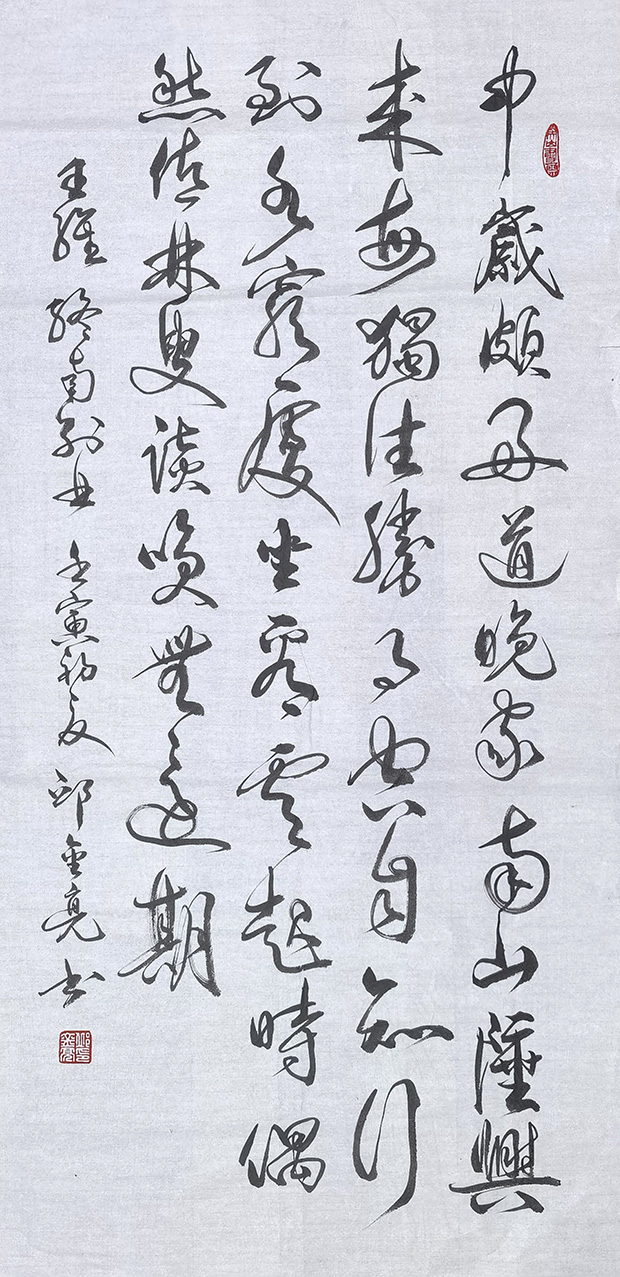 中歲頗好道晚家南山陲興
來每獨往勝事空自知行
到水窮處坐看雲起時偶
然值林叟談咲無還期
王維終南別業 壬寅初夏 邱金亮書